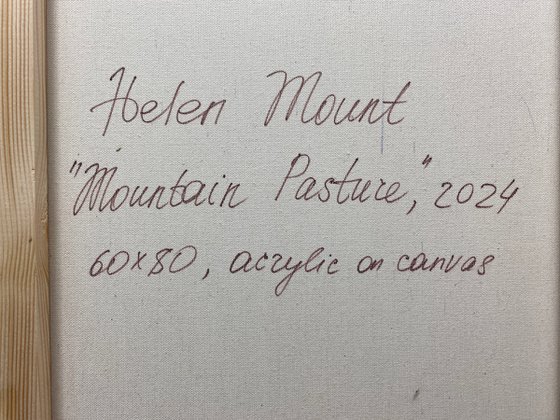 Helen Mount
"Mountain Pasture", 2024
60x80, acrylic on canvas